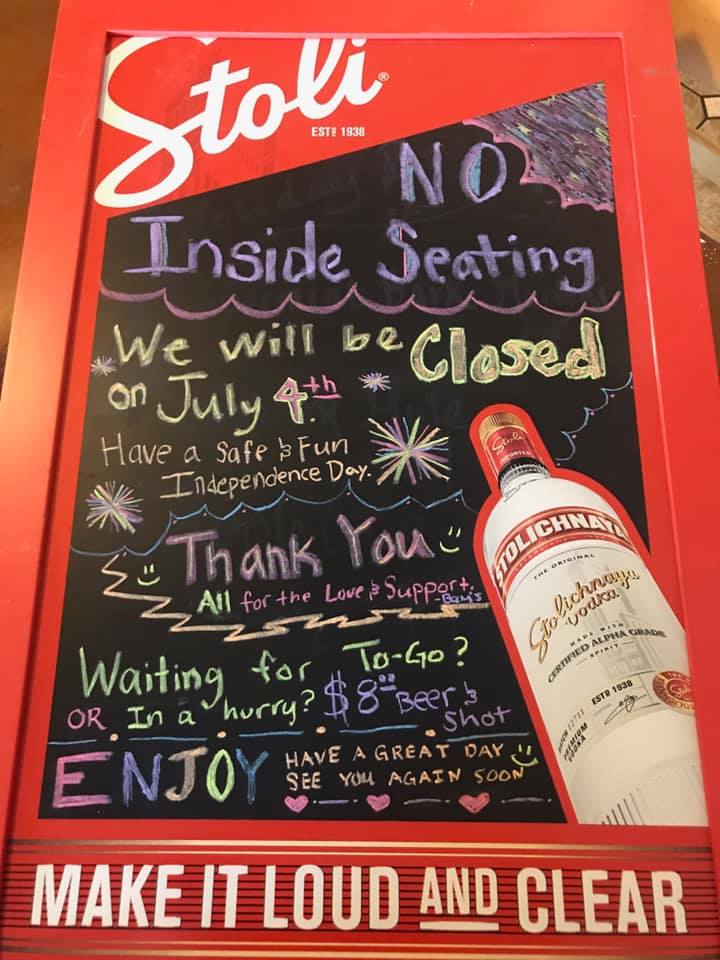 Stoli®
ESTD 1938
NO
Inside Seating
We will be Closed
on July 4th.
Have a Safe & Fun
Independence Day.
Thank You
All for the Love & Support.
Waiting for To-Go?
OR In a hurry? $8.00 Beer &
Shot
ENJOY
HAVE A GREAT DAY
SEE YOU AGAIN SOON
Stoli
STOLICHNAYA
THE ORIGINAL
Stolichnaya
vodka
MADE WITH
CERTIFIED ALPHA GRADE
SPIRIT
ESTD 1938
PREMIUM
VODKA
MAKE IT LOUD AND CLEAR